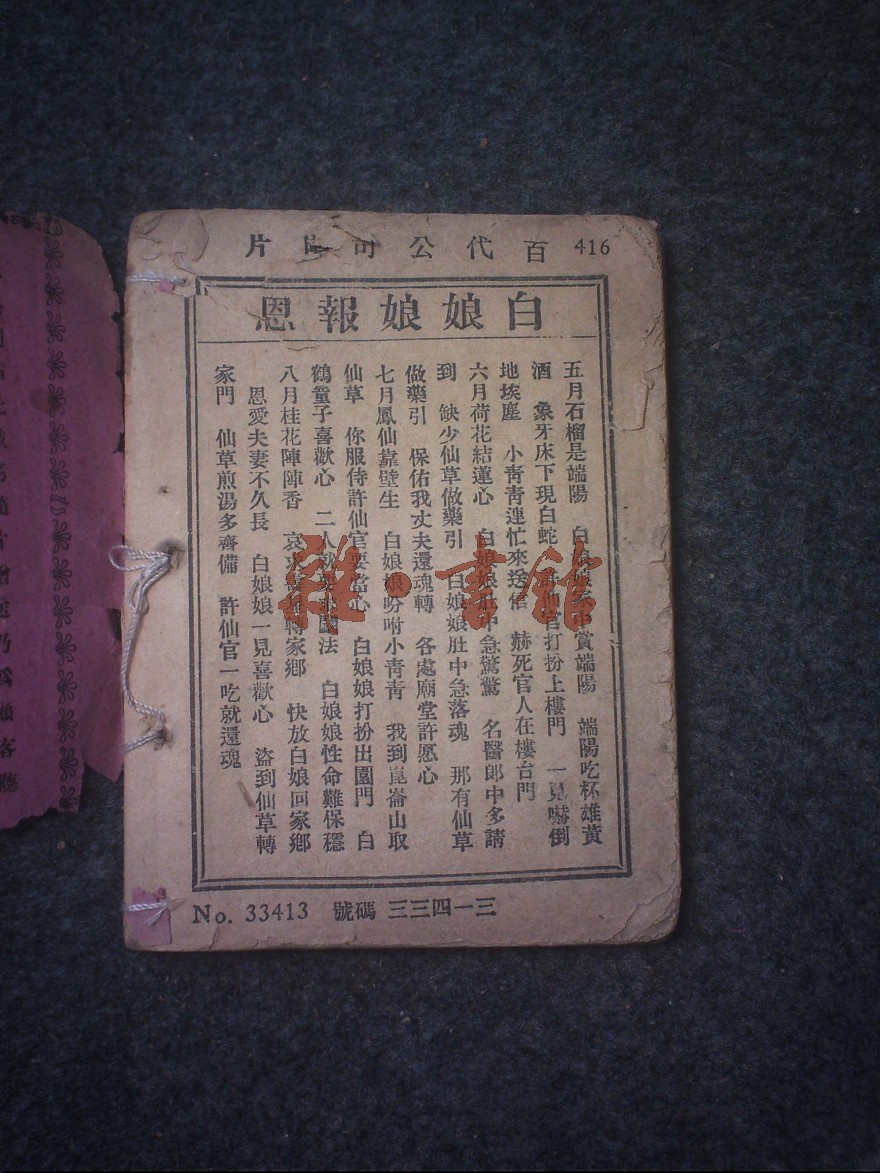 416 百代公司唱片
白娘娘報恩
五月石榴是端陽 白娘娘家中賞端陽 端陽吃杯雄黃
酒 象牙床下現白蛇 許仙官打扮上樓門 一見嚇倒
地埃塵 小靑靑連忙來送信 赫死官人在樓台門
六月荷花結蓮心 白娘娘肚中急驚驚 名醫郎中多請
到 缺少仙草做藥引 白娘娘肚中急落魂 那有仙草
做藥引 保佑我丈夫還魂轉 各處廟堂許愿心
七月鳳仙靠壁生 白娘娘吩咐小靑靑 我到崑崙山取
仙草 你服侍許仙官要當心 白娘娘打扮出園門 白
鶴童子喜歡心 二人就 法 白娘娘性命難保穩
八月桂花陣陣香 哀求 轉家鄉 快放白娘回家鄉
恩愛夫妻不久長 白娘娘一見喜歡心 盜到仙草轉
家門 仙草煎湯多齊備 許仙官一吃就還魂
No. 33413 號碼 三三四一三
雅·書館